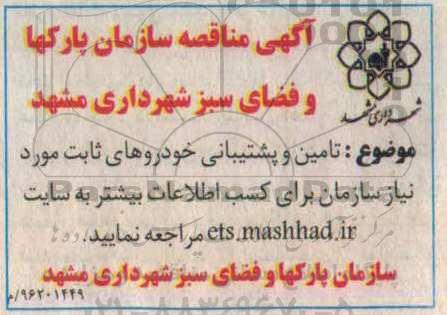 آگهی مناقصه سازمان پارکها
و فضای سبز شهرداری مشهد
شهرداری مشهد
موضوع : تامین و پشتیبانی خودروهای ثابت مورد
نیاز سازمان برای کسب اطلاعات بیشتر به سایت
ets.mashhad.ir مراجعه نمایید.
سازمان پارکها و فضای سبز شهرداری مشهد
۹۶۲۰۱۴۴۹/م